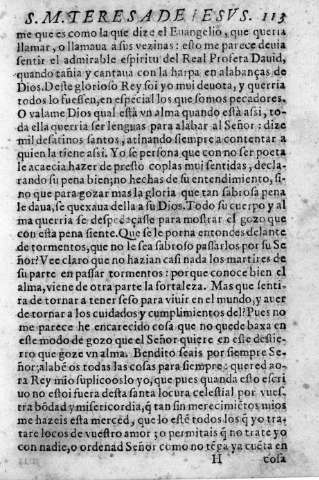 S. M. TERESA DE IESVS. 113
me que es como la que dize el Euangelio, que queria
llamar, o llamaua a sus vezinas: esto me parece deuia
sentir el admirable espiritu del Real Profeta Dauid,
quando tañia y cantaua con la harpa en alabanças de
Dios. Deste glorioso Rey soi yo mui deuota, y querria
todos lo fuessen, en especial los que somos pecadores.
O valame Dios qual està vn alma quando està assi, to-
da ella querria ser lenguas para alabar al Señor: dize
mil desatinos santos, atinando siempre a contentar a
quien la tiene assi. Yo se persona que con no ser poeta
le acaecia hazer de presto coplas mui sentidas, decla-
rando su pena bien; no hechas de su entendimiento, si-
no que para gozar mas la gloria que tan sabrosa pena
le daua, se quexaua della a su Dios. Todo su cuerpo y al
ma querria se despedaçasse para mostrar el gozo que
con esta pena siente. Que se le porna entonces delante
de tormentos, que no le sea sabroso passarlos por su Se
ñor? Vee claro que no hazian casi nada los martires de
su parte en passar tormentos: porque conoce bien el
alma, viene de otra parte la fortaleza. Mas que senti-
ra de tornar a tener seso para viuir en el mundo, y auer
de tornar a los cuidados y cumplimientos del? Pues no
me parece he encarecido cosa que no quede baxa en
este modo de gozo que el Señor quiere en este destie-
rro que goze vn alma. Bendito seais por siempre Se-
ñor; alabẽ os todas las cosas para siempre: quered ao-
ra Rey mio suplicooslo yo, que pues quando esto escri
uo no estoi fuera desta santa locura celestial por vues-
tra bõdad y misericordia, q̃ tan sin merecimiẽtos mios
me hazeis esta merced, que lo estẽ todos los q̃ yo tra-
tare locos de vuestro amor; o permitais q̃ no trate yo
con nadie, o ordenad Señor como no tẽga ya cuẽta en
H cosa